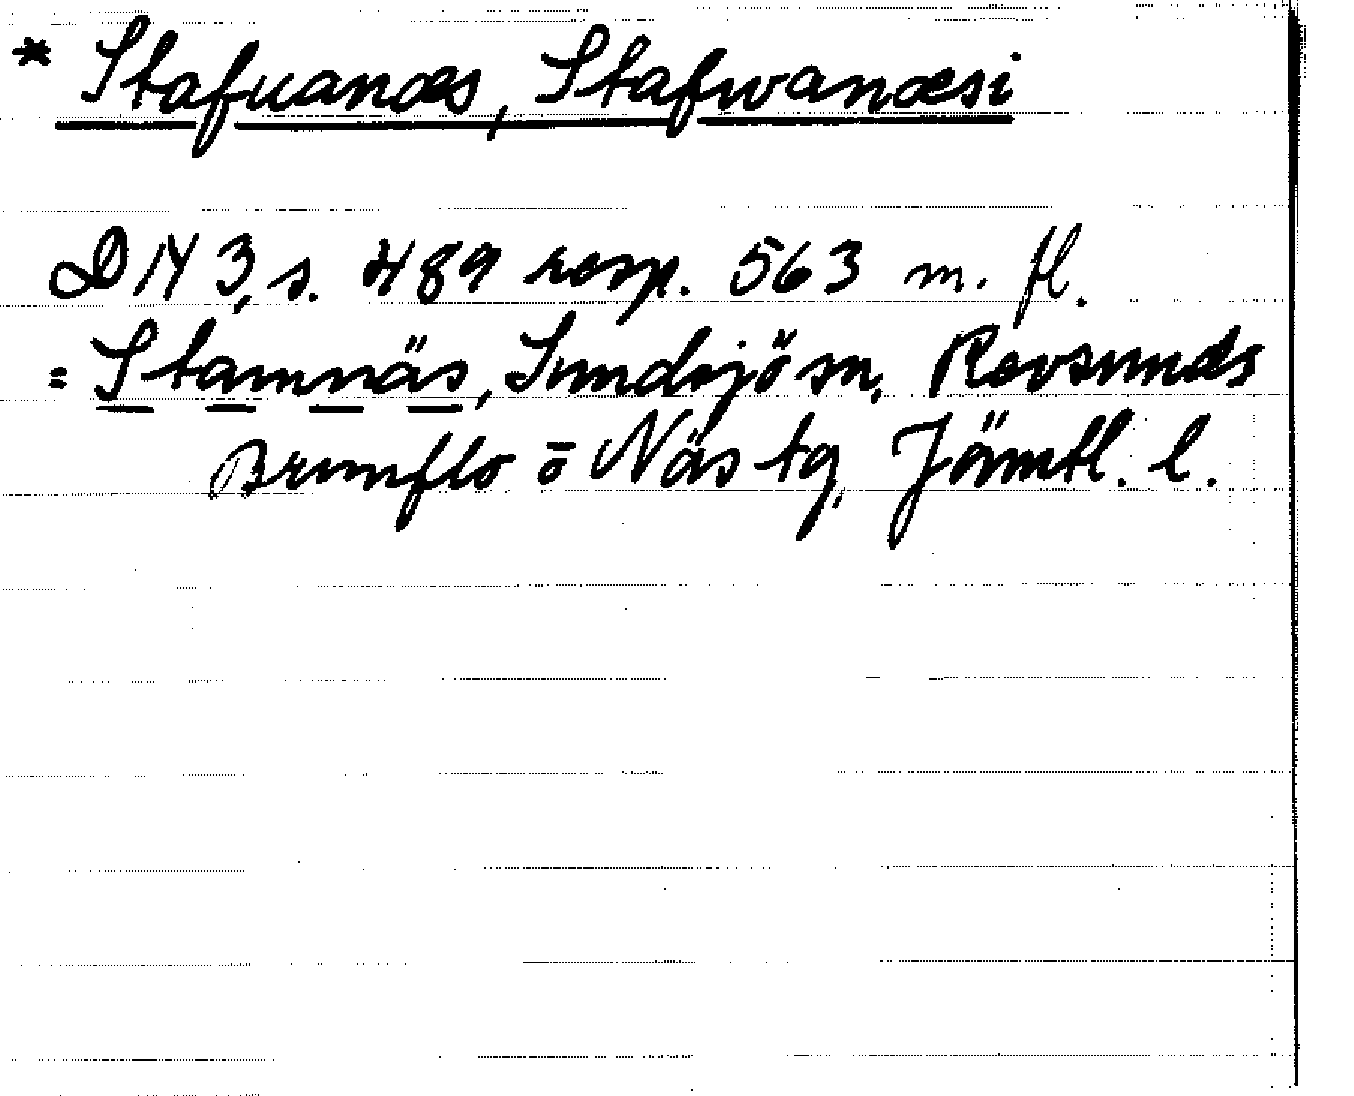 * Stafuanæs, Stafwanæsi
DN 3, s. 489 resp. 563 m. fl.
= Stamnäs, Sundsjö sn, Revsunds
Brunflo o Näs tg, Jämtl. l.